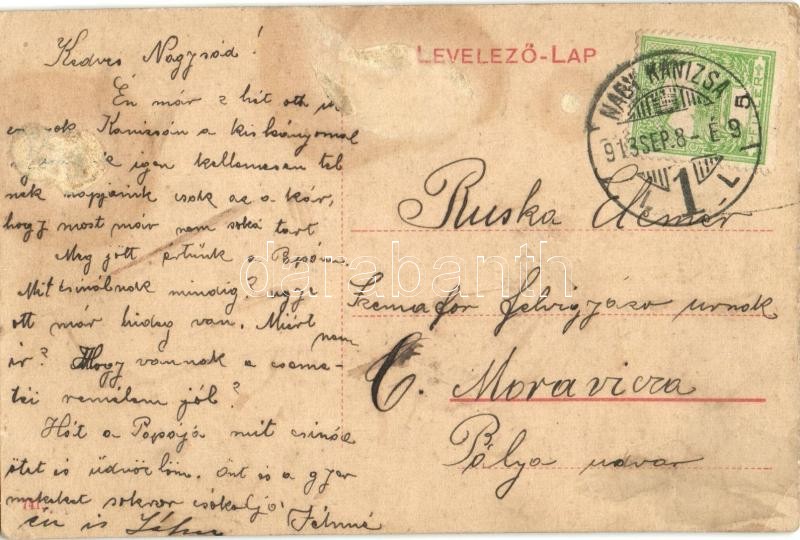 Kedves Nagysád!
Én már 2 hét ott
Kanizsán a kis lányomal
igen kellemesen tel
nek napjaink csak az a kár,
hogy most már nem soká tart
Meg jött értünk a Papája.
Mit csinálnak mindig? ugye
ott már hideg van. Miért nem
ir? Hogy vannak a cseme-
téi remélem jól?
Hát a Papája mit csinál
őtet is üdvözlöm. Önt is a gyer
mekeket sokszor csókolja
én is
LEVELEZŐ-LAP
NAGY-KANIZSA
913 SEP. 8 - É 9
1
Ruska Elemér
Szemafor felvigyázó urnak
C. Moravicza
Pálya udvar
darabanth